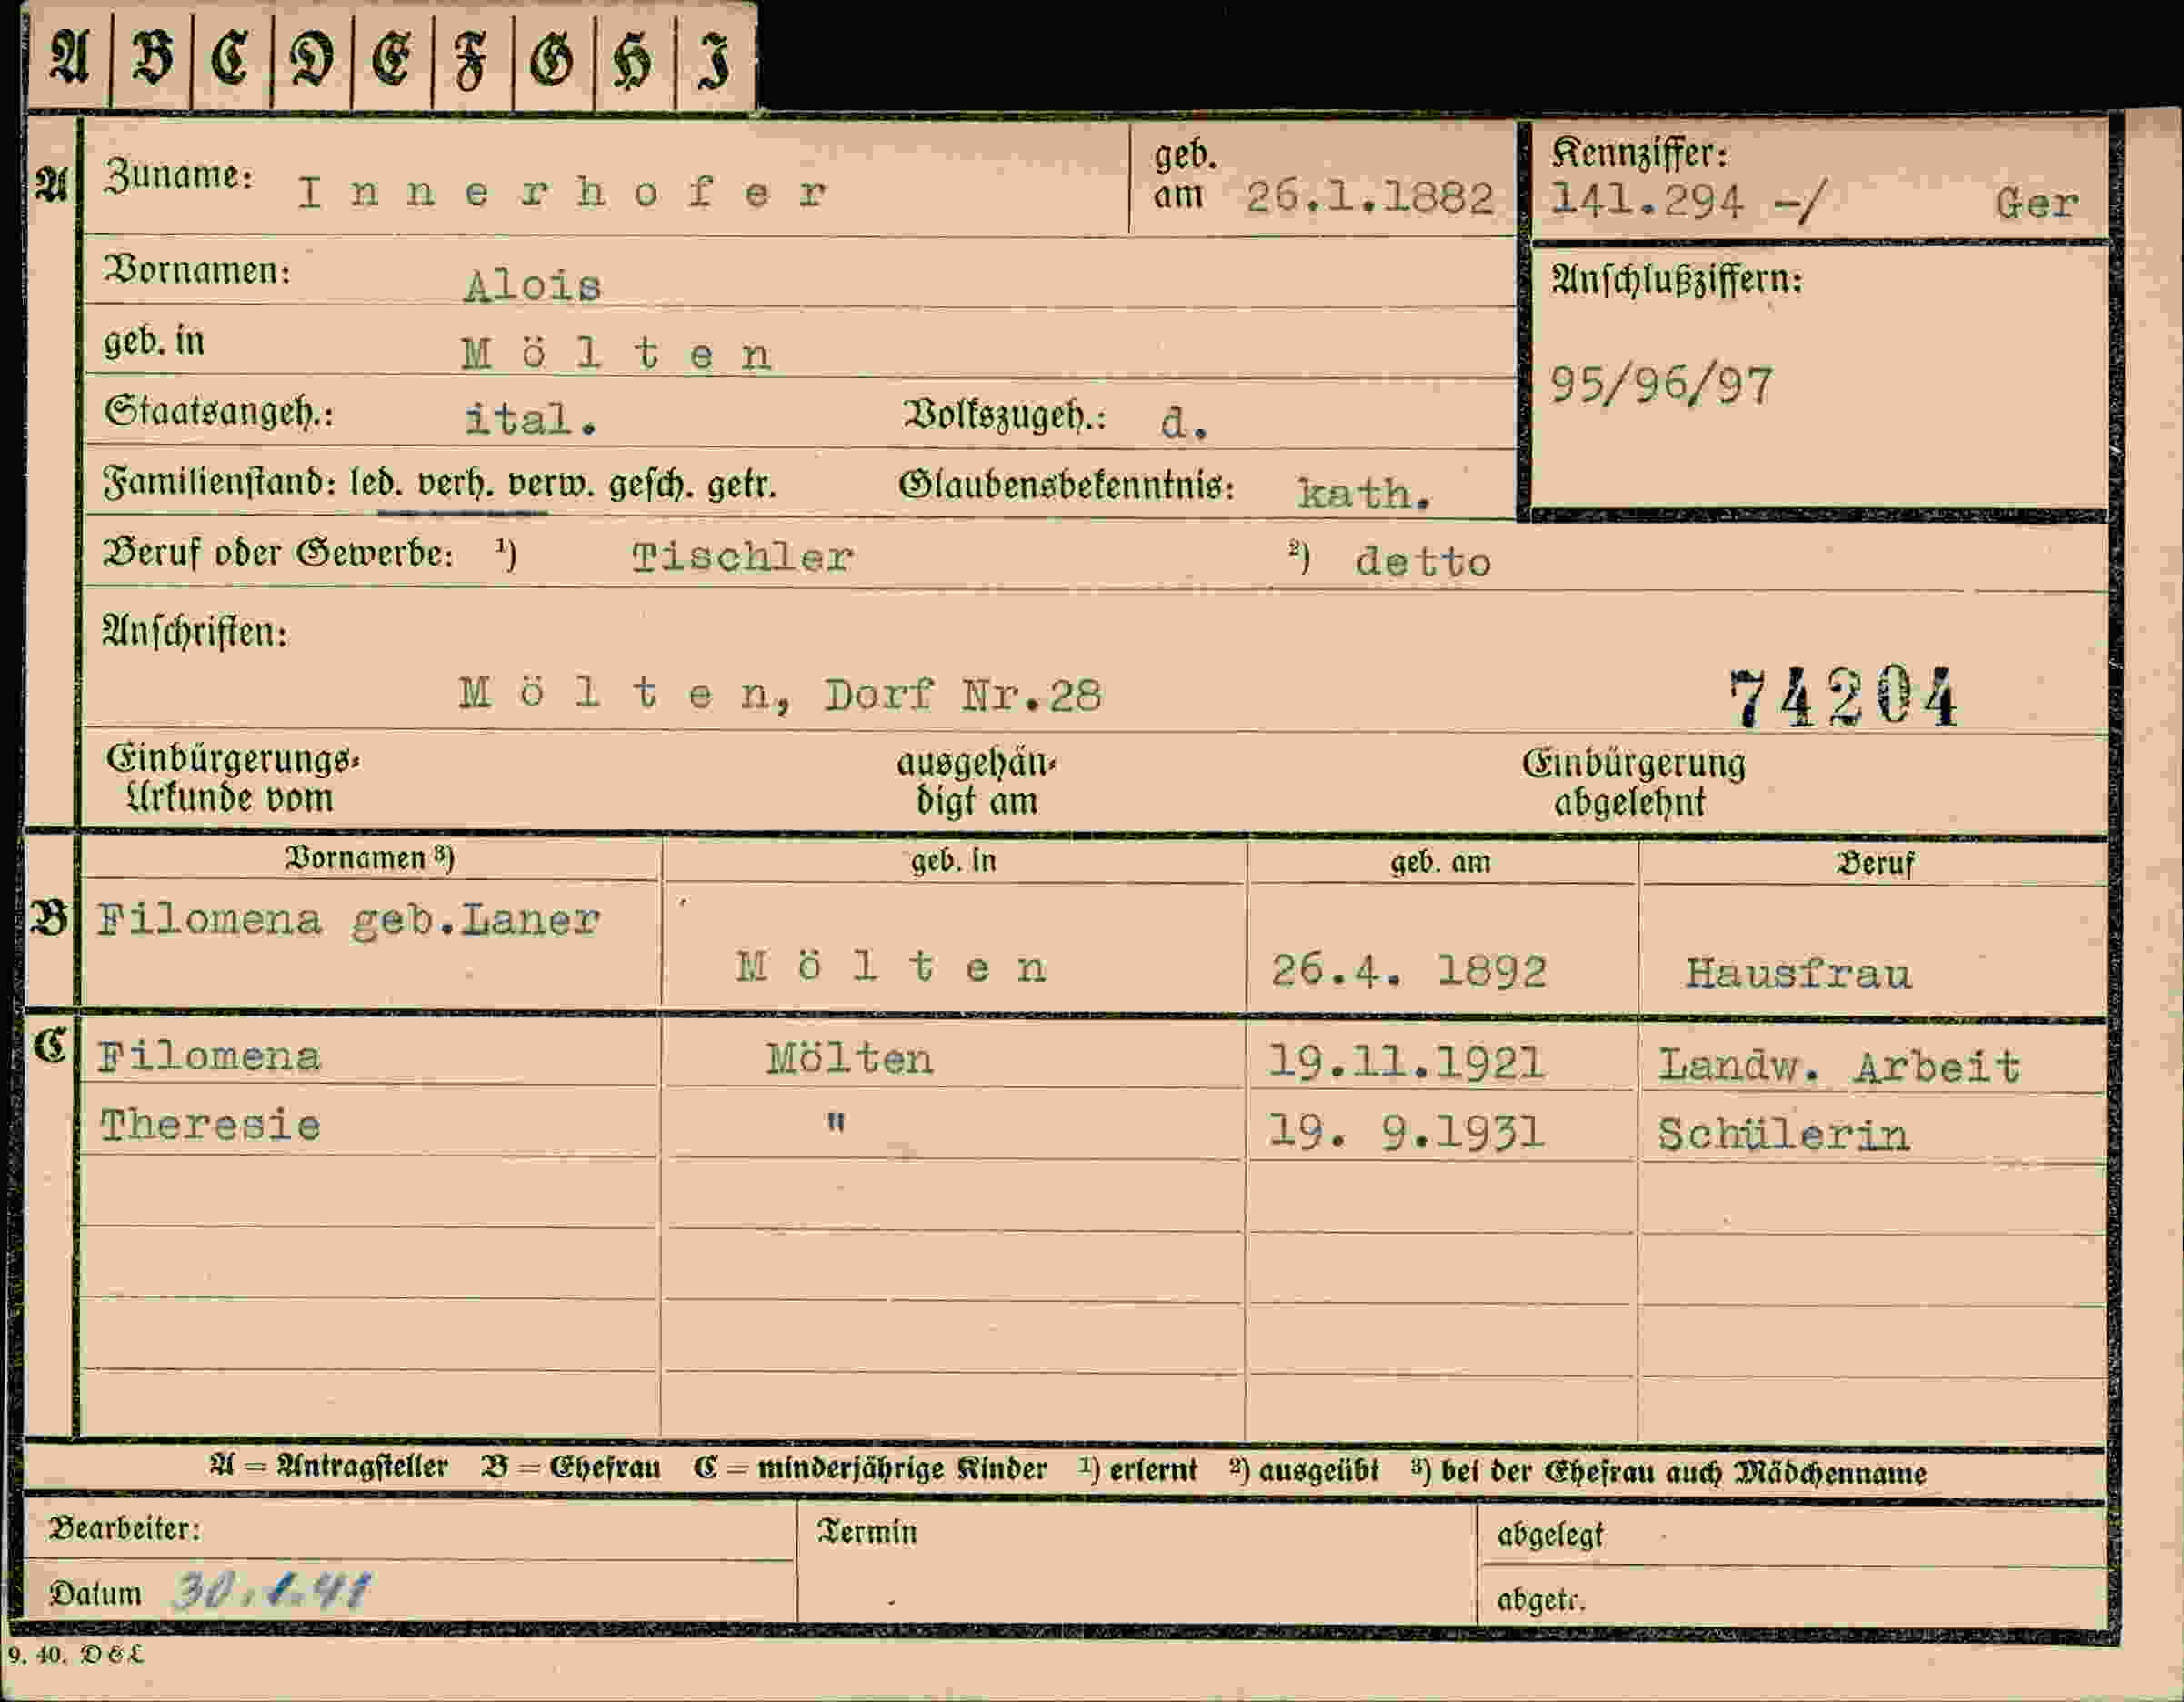 A B C D E F G H I
A Zuname: Innerhofer geb. am 26.1.1882 Kennziffer: 141.294 -/ Ger
Vornamen: Alois Anschlußziffern:
geb. in Mölten
95/96/97
Staatsangeh.: ital. Volkszugeh.: d.
Familienstand: led. verh. verw. gesch. getr. Glaubensbekenntnis: kath.
Beruf oder Gewerbe: ¹) Tischler ²) detto
Anschriften:
Mölten, Dorf Nr.28 74204
Einbürgerungs- ausgehän- Einbürgerung
Urkunde vom digt am abgelehnt
Vornamen ³) geb. in geb. am Beruf
B Filomena geb.Laner
Mölten 26.4. 1892 Hausfrau
C Filomena Mölten 19.11.1921 Landw. Arbeit
Theresie " 19. 9.1931 Schülerin
A = Antragsteller B = Ehefrau C = minderjährige Kinder ¹) erlernt ²) ausgeübt ³) bei der Ehefrau auch Mädchenname
Bearbeiter: Termin abgelegt
Datum 30.1.41 abgetr.
9. 40. D & L